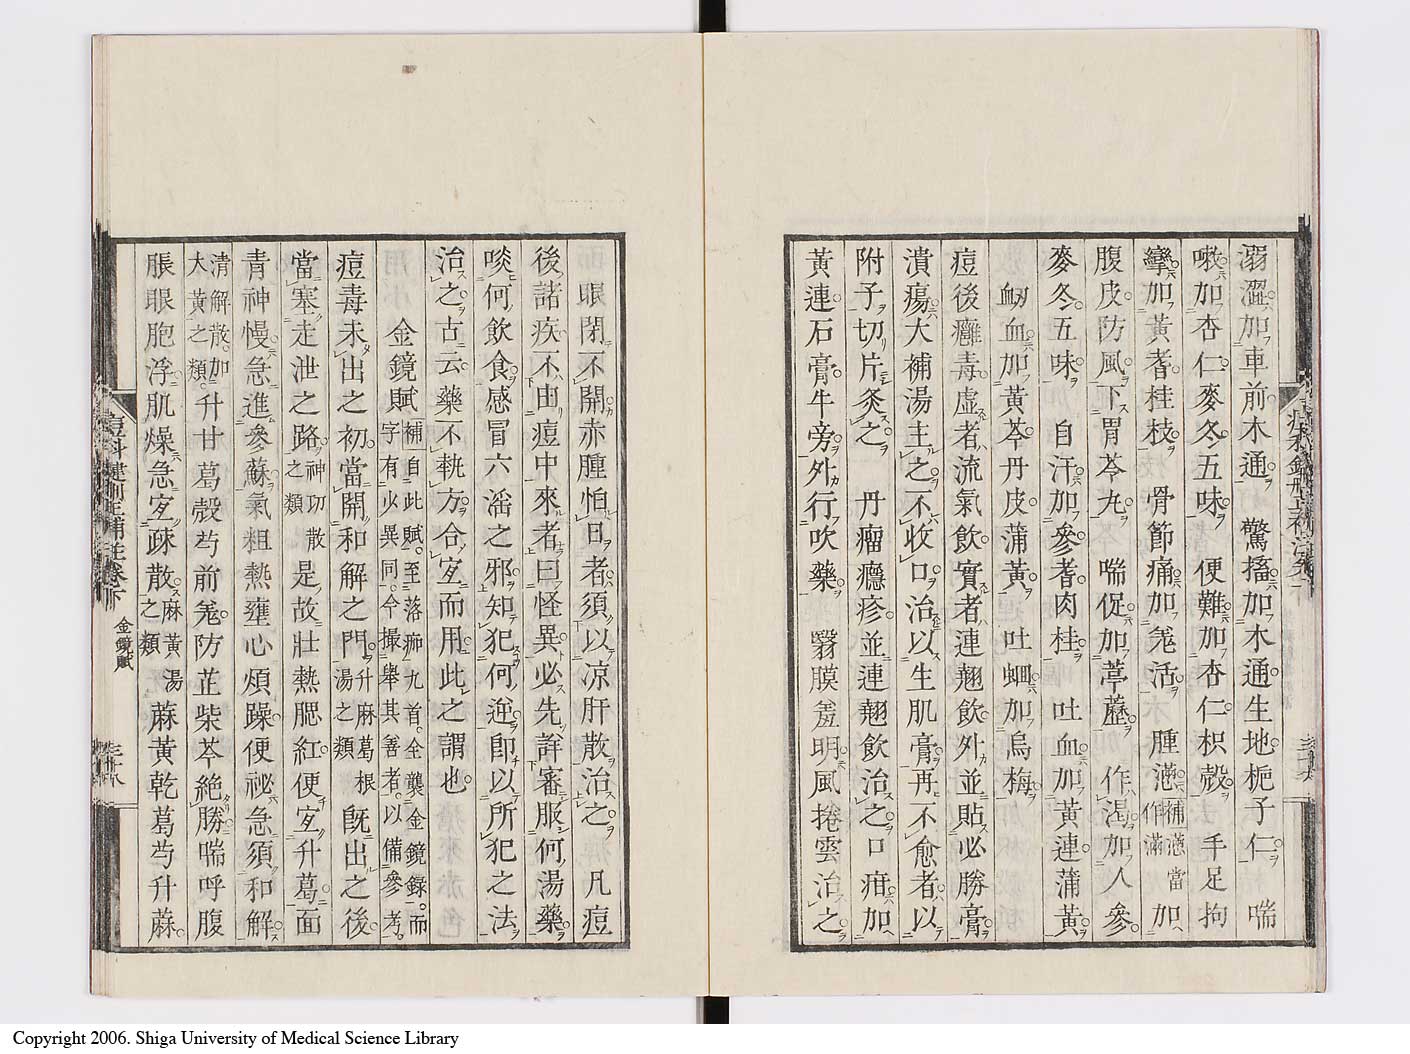 溺澀加車前木通　驚搐加木通生地梔子仁　喘
嗽加杏仁麥冬五味　便難加杏仁枳殼　手足拘
攣加黃耆桂枝　骨節痛加羗活　腫懣補懣當作滿加
腹皮防風下胃苓丸　喘促加葶藶　作渴加人參
麥冬五味　自汗加參耆肉桂　吐血加黃連蒲黃
衂血加黃芩丹皮蒲黃　吐蛔加烏梅
痘後癰毒虛者流氣飲實者連翹飲外並貼必勝膏
潰瘍大補湯主之不收口治以生肌膏再不愈者以
附子切片灸之　丹瘤癮疹並連翹飲治之口疳加
黃連石膏牛旁外行吹藥　翳膜羞明風捲雲治之
眼閉不開赤腫怕日者須以凉肝散治之　凡痘
後諸疾不由痘中來者曰怪異必先詳審服何湯藥
啖何飲食感冒六淫之邪知犯何逆卽以所犯之法
治之古云藥不執方合宐而用此之謂也
金鏡賦補自此賦至落痂九首全襲金鏡錄而字有少異同今撮舉其善者以備參考
痘毒未出之初當開和解之門升麻葛根湯之類旣出之後
當塞走泄之路神功散之類是故壯熱腮紅便宐升葛面
青神慢急進參蘇氣粗熱壅心煩躁便祕急須和解
清解散加大黃之類升甘葛殼芍前羗防芷柴芩絶勝喘呼腹
脹眼胞浮肌燥急宐疎散麻黃湯之類蔴黃乾葛芍升蔴
金鏡賦